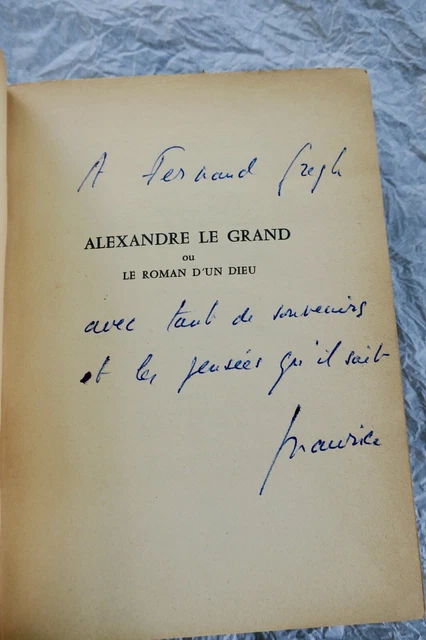 A Fernand Gregh
ALEXANDRE LE GRAND
ou
LE ROMAN D'UN DIEU
avec tant de souvenirs
et les pensées qu'il sait
Maurice